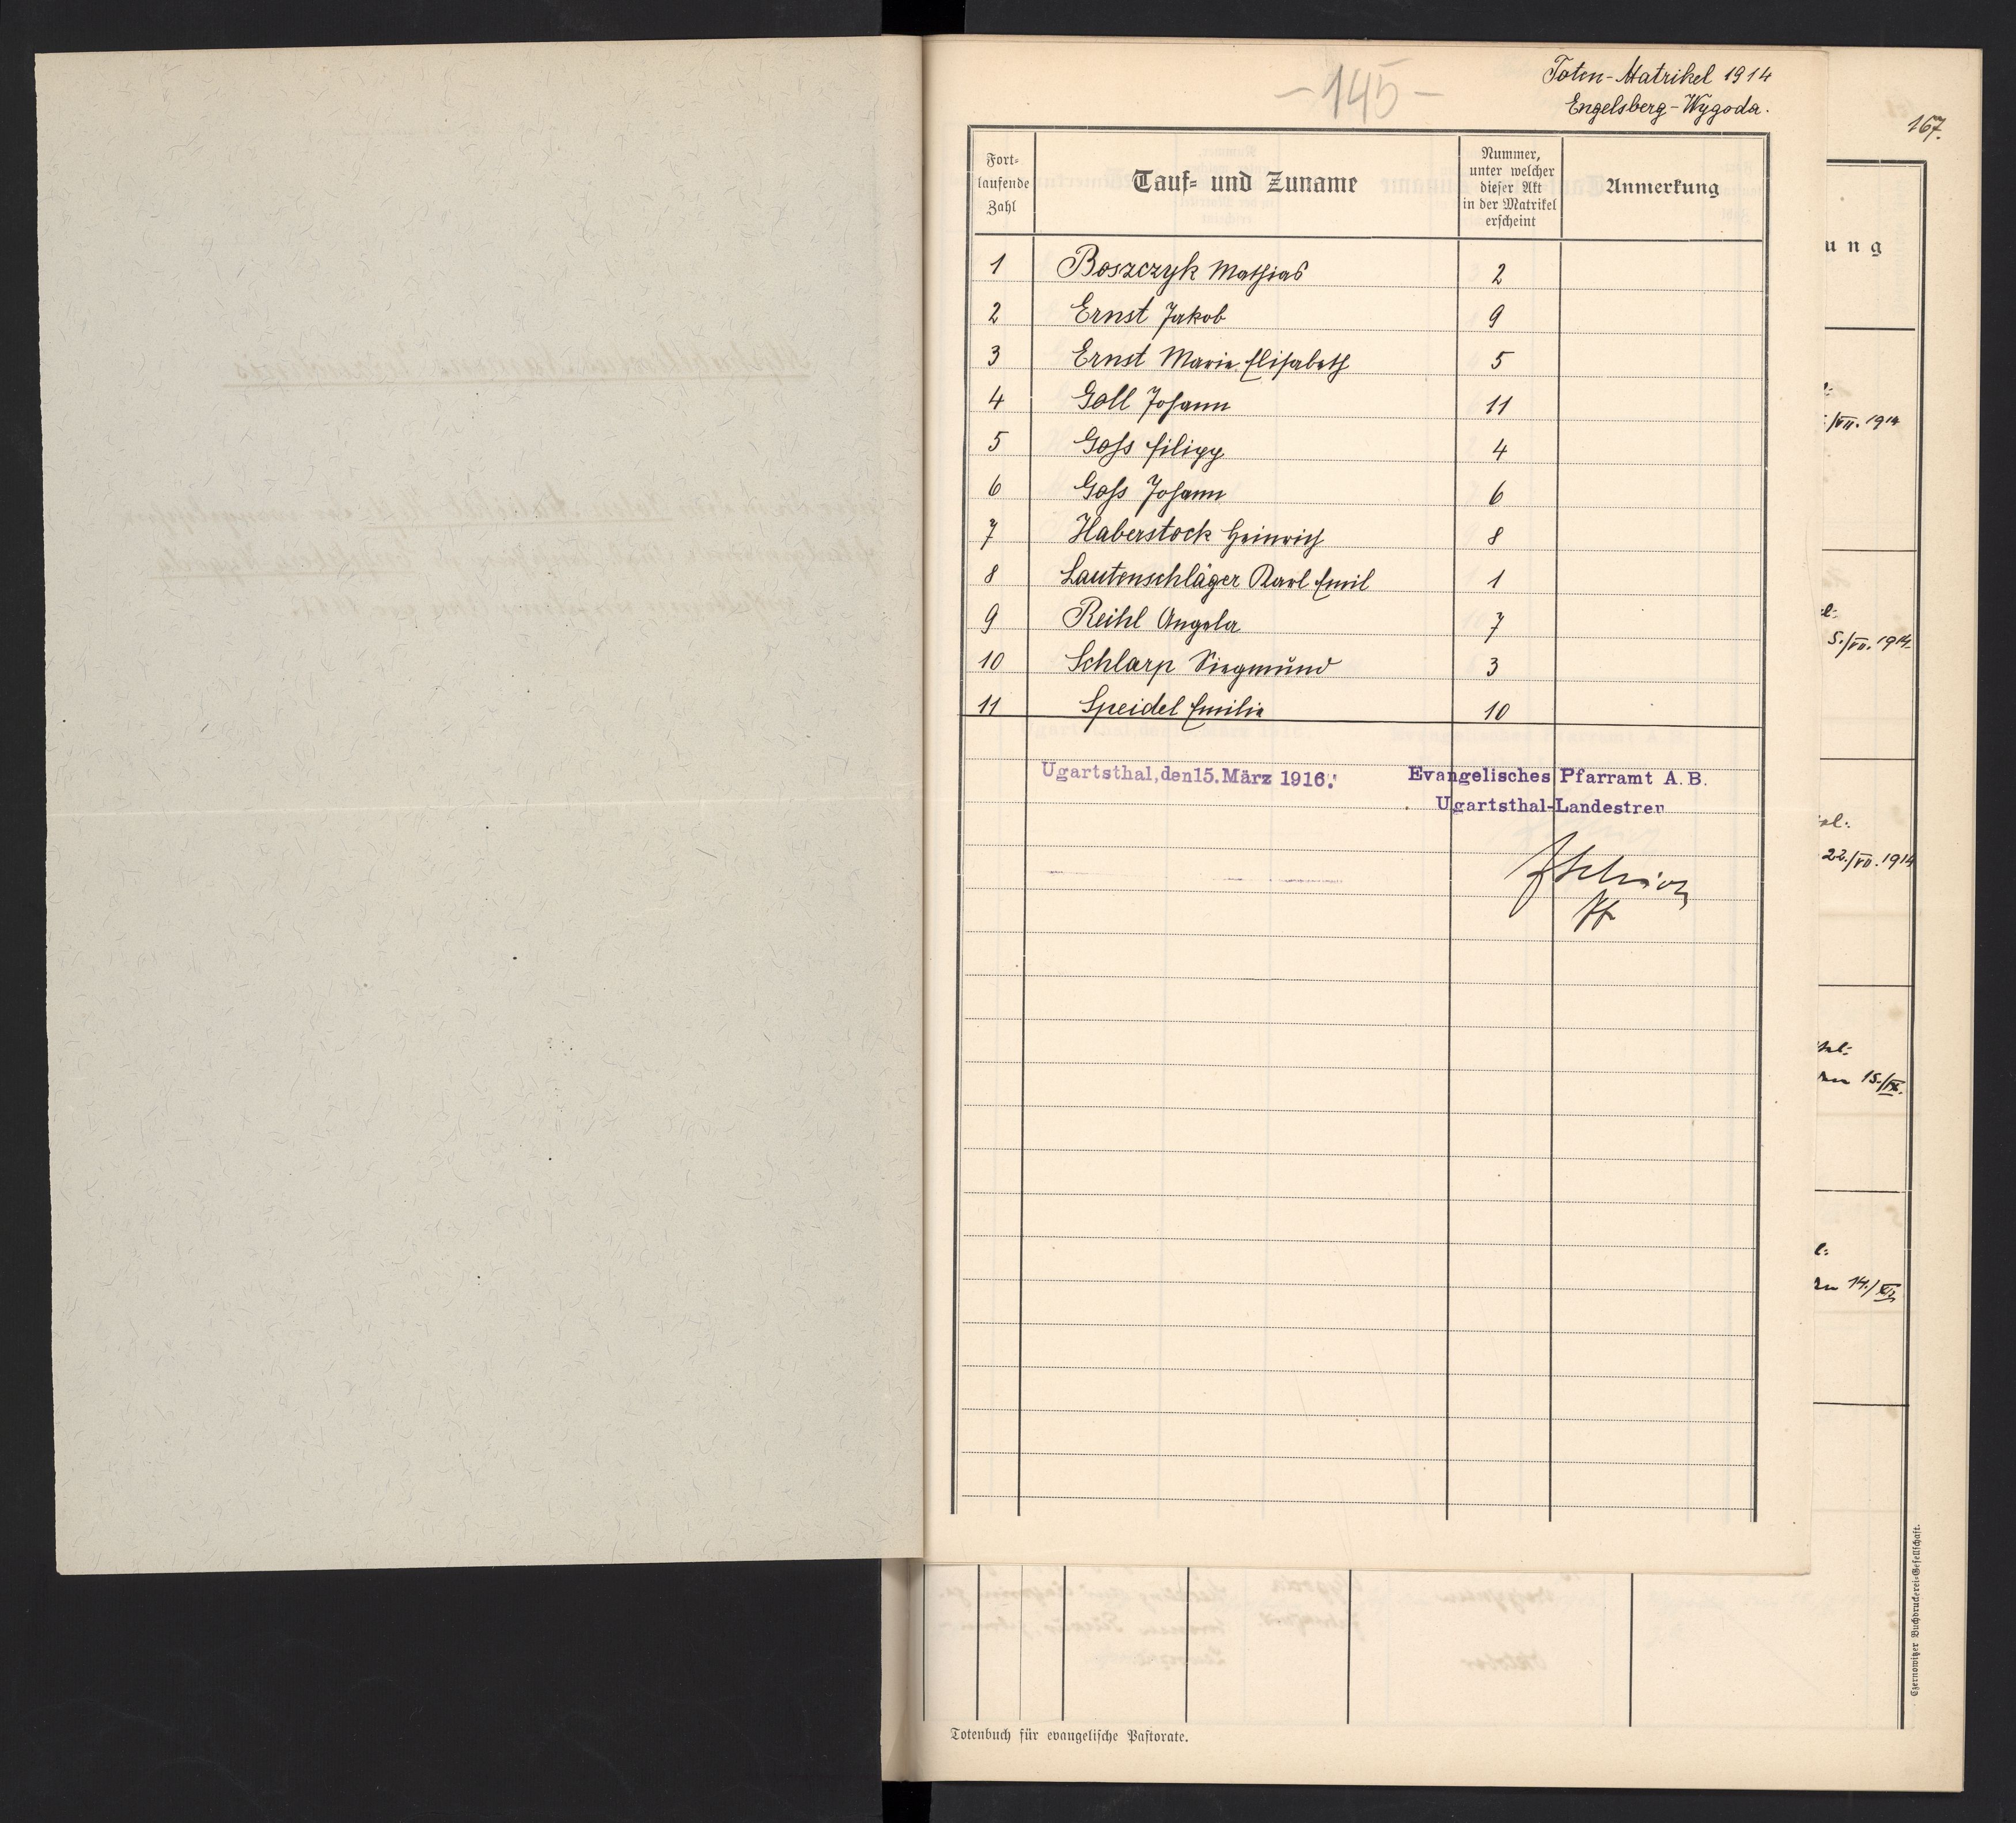 -145-
Toten-Matrikel 1914
Engelsberg-Wygoda.
167.
Fort-
laufende
Zahl
Tauf- und Zuname
Nummer,
unter welcher
dieser Akt
in der Matrikel
erscheint
Anmerkung
ung
1 Boszczyk Mathias 2
2 Ernst Jakob 9
3 Ernst Marie Elisabeth 5
4 Goll Johann 11
5 Gohs Filipp 4
6 Gohs Johann 6
7 Haberstock Heinrich 8
8 Lautenschläger Karl Emil 1
9 Reihl Angela 7
10 Schlarp Siegmund 3
11 Speidel Emilie 10
Ugartsthal, den 15. März 1916.
Evangelisches Pfarramt A. B.
Ugartsthal-Landestreu
/VII. 1914
5./VII. 1914
22./VII. 1914
15./IX.
14./XI.
Totenbuch für evangelische Pastorate.
Czernowitzer Buchdruckerei-Gesellschaft.